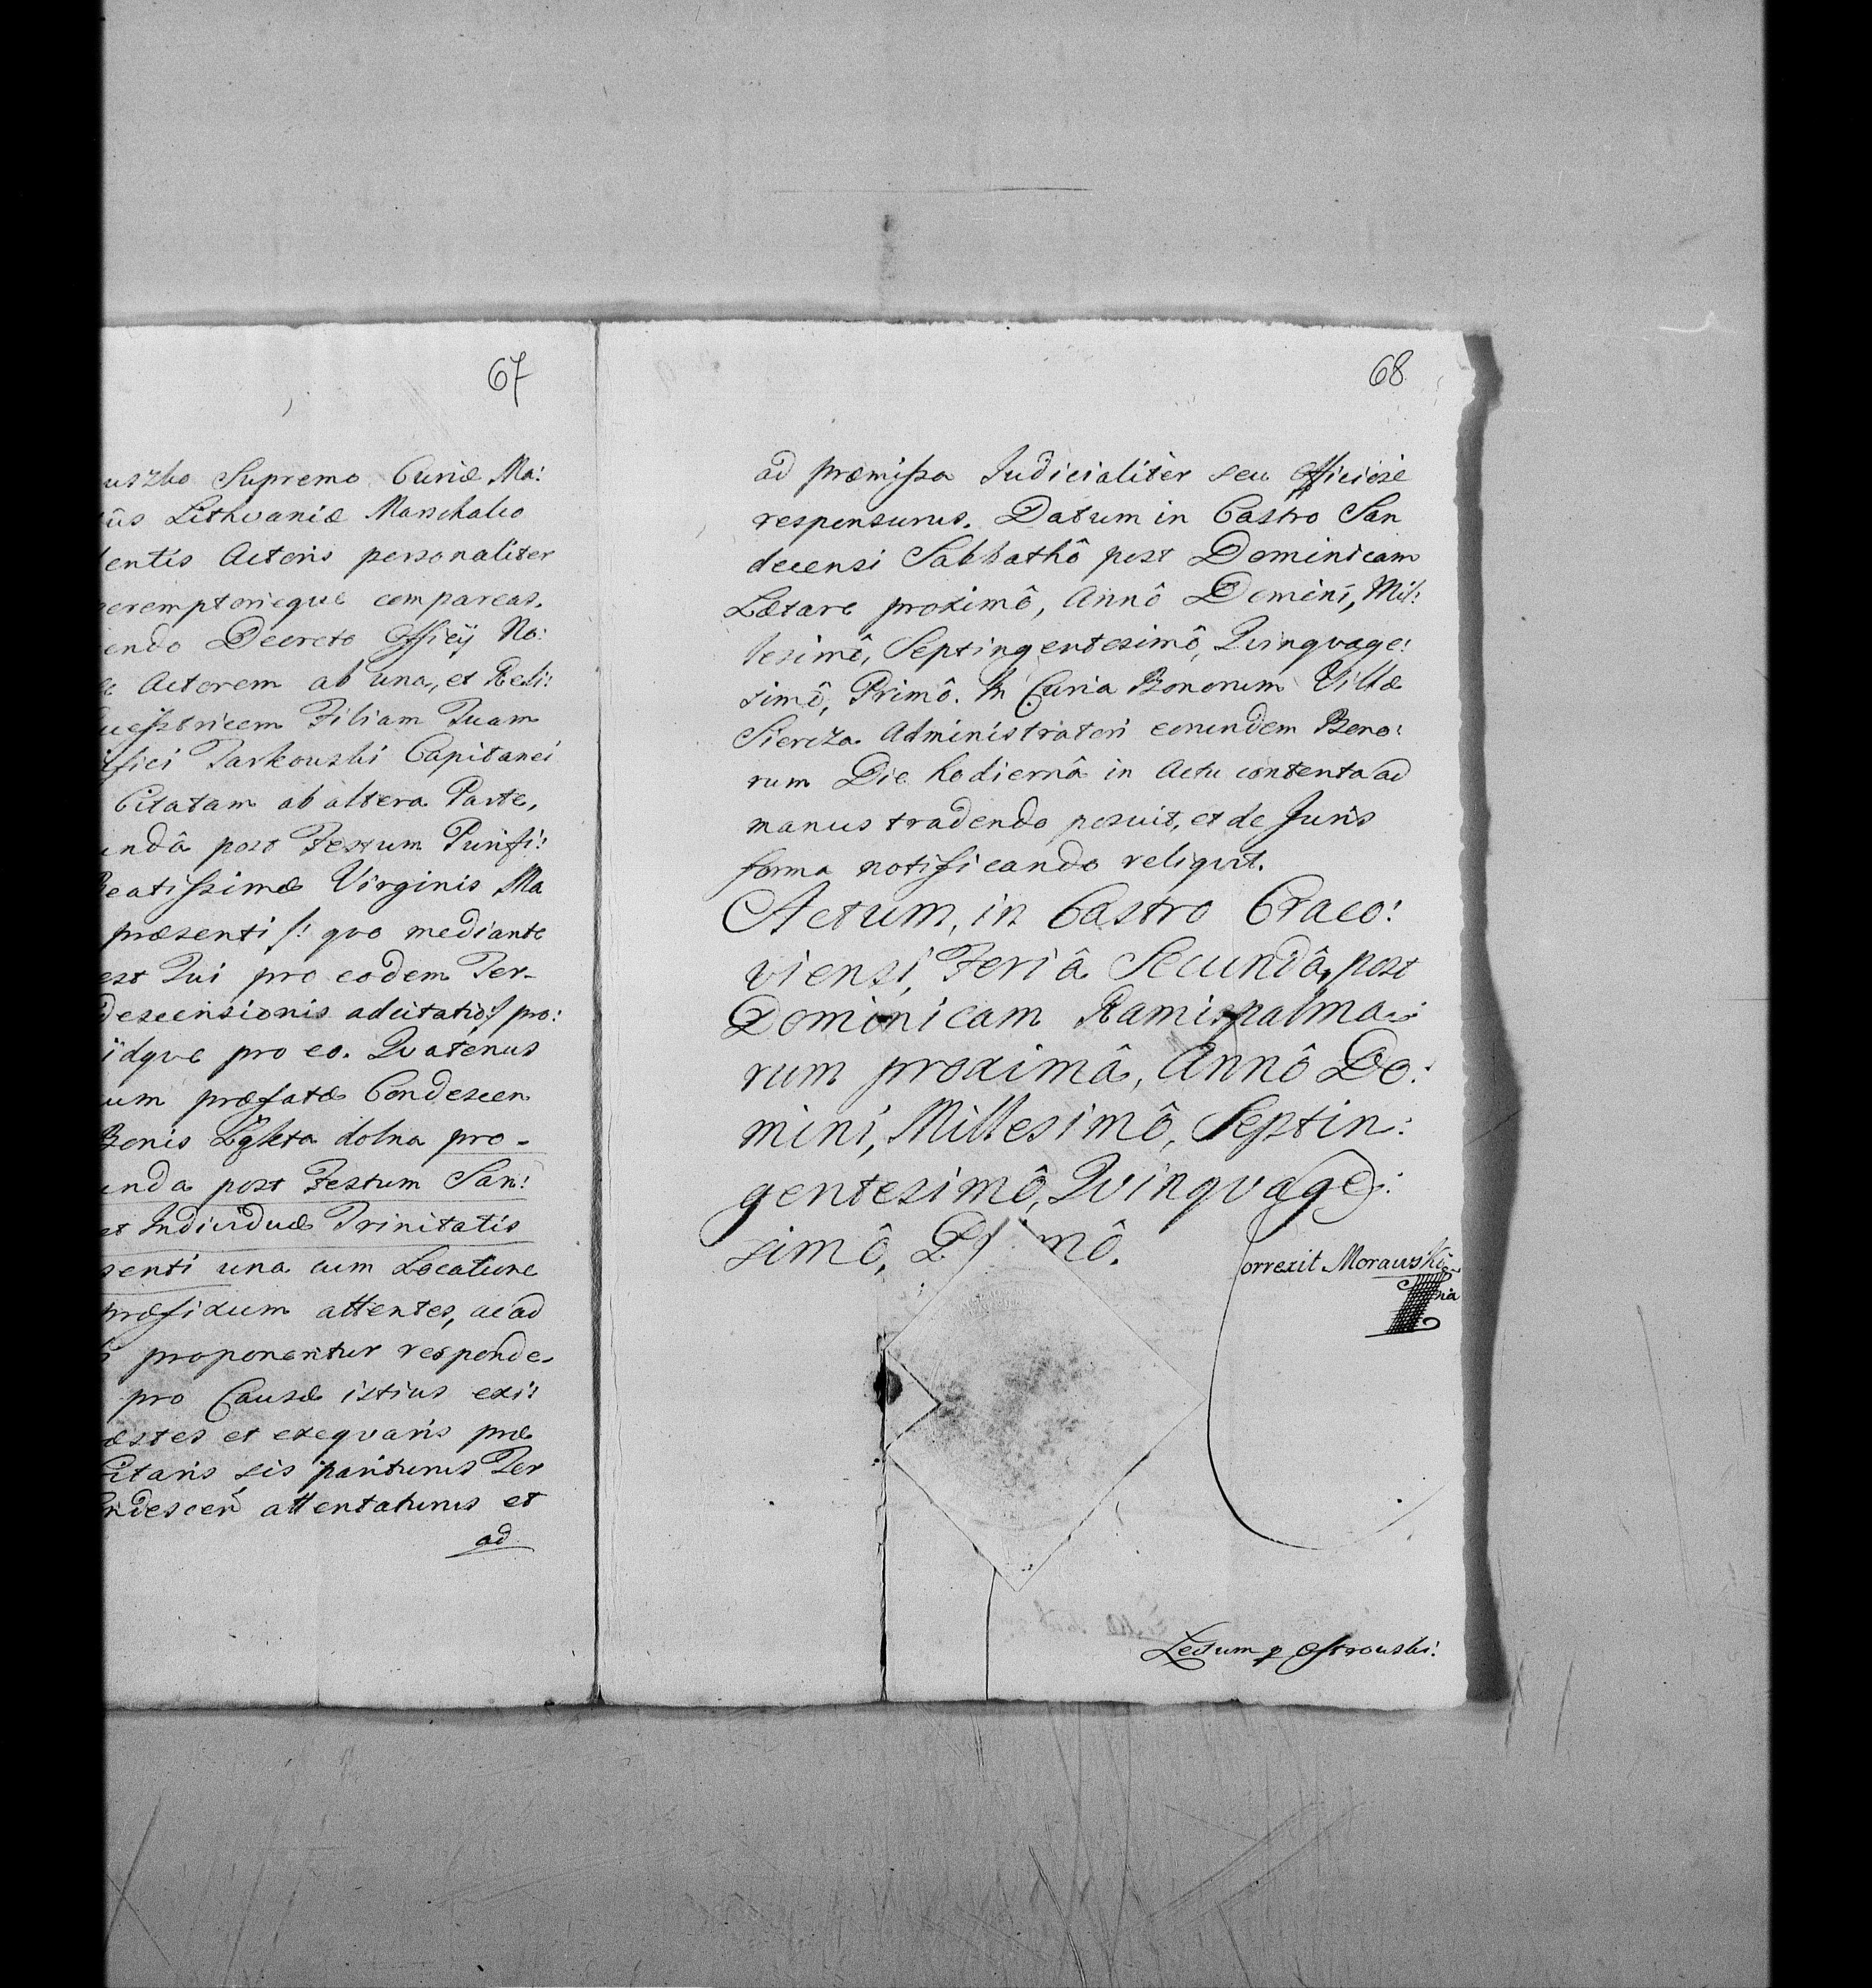 67
uszko Supremo Curiæ Ma:
ûs Lithvaniæ Marschalco
entis Actoris personaliter
peremptorieque compareas.
endo Decreto Officÿ No:
Actorem ab una, et Reli:
Filiam Tuam
ifici Tarkowski Capitanei
Citatam ab altera Parte,
undâ post Festum Purifi:
Beatissimæ Virginis Ma
præsenti /: quo mediante
est Tui pro eodem Ter-
descensionis adcitatio :/ pro:
idque pro eo. Qvatenus
um præfatæ Condescen
Bonis Zgłeta dolna pro-
unda post Festum San:
et Individuæ Trinitatis
senti una cum Locatione
præfixum attentes, ac ad
proponentur responde-
pro Causæ istius exi:
æstes et exequaris præ
Citaris, sis pariturus Ter
ndescen attentaturus et
ad
68
ad præmissa Judicialiter seu Officiose
responsurus. Datum in Castro San
decensi Sabbathô post Dominicam
Lætare proximô, Annô Domini, Mil:
lesimô, Septingentesimô, Qvinqvage:
simô, Primô. In Curia Bonorum Villæ
Siercza Administratori eorundem Bono:
rum Die hodiernâ in Actu contenta ad
manus tradendo posuit, et de Juris
forma notificando reliqvit.
Actum, in Castro Craco:
viensi, Feriâ Secundâ, post
Dominicam Ramispalma:
rum proximâ, Annô Do:
mini, Millesimô, Septin:
gentesimô, Qvinqvage:
simô, P mô.
Correxit Morawski
Lectum p Ostrowski: